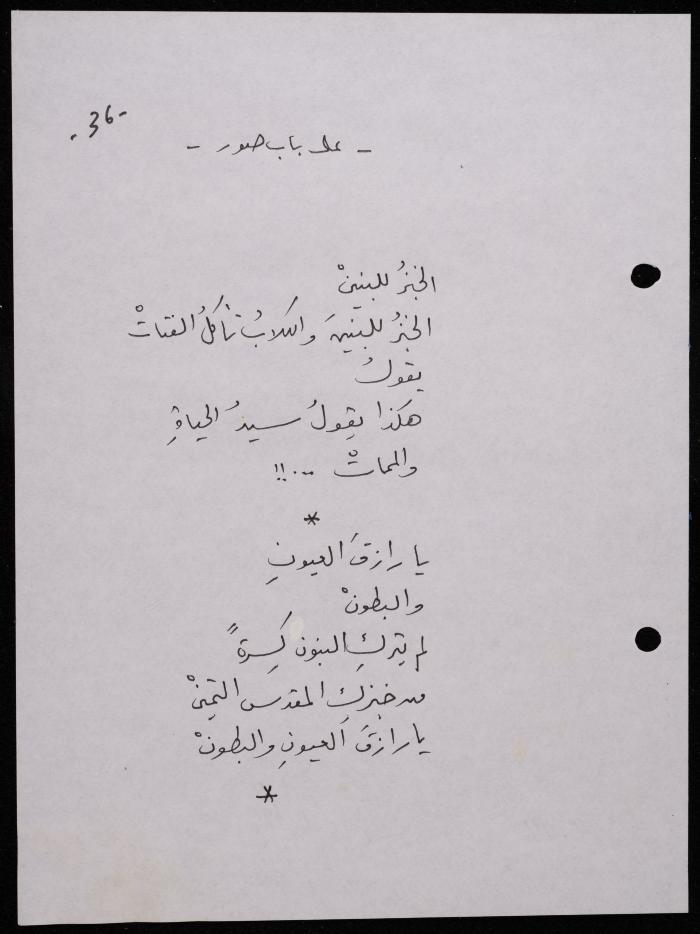 -36-
- على باب صور -
الخبزُ للبنينْ
الخبزُ للبنينَ والكلابُ تأكلُ الفتاتْ
يقولُ
هكذا يقولُ سيدُ الحياةِ
والمماتْ ...!!
*
يا رازقَ العيونِ
والبطونْ
لم يتركِ البنون كِسرةً
من خبزكِ المقدس الثمينْ
يا رازقَ العيونِ والبطونْ
*